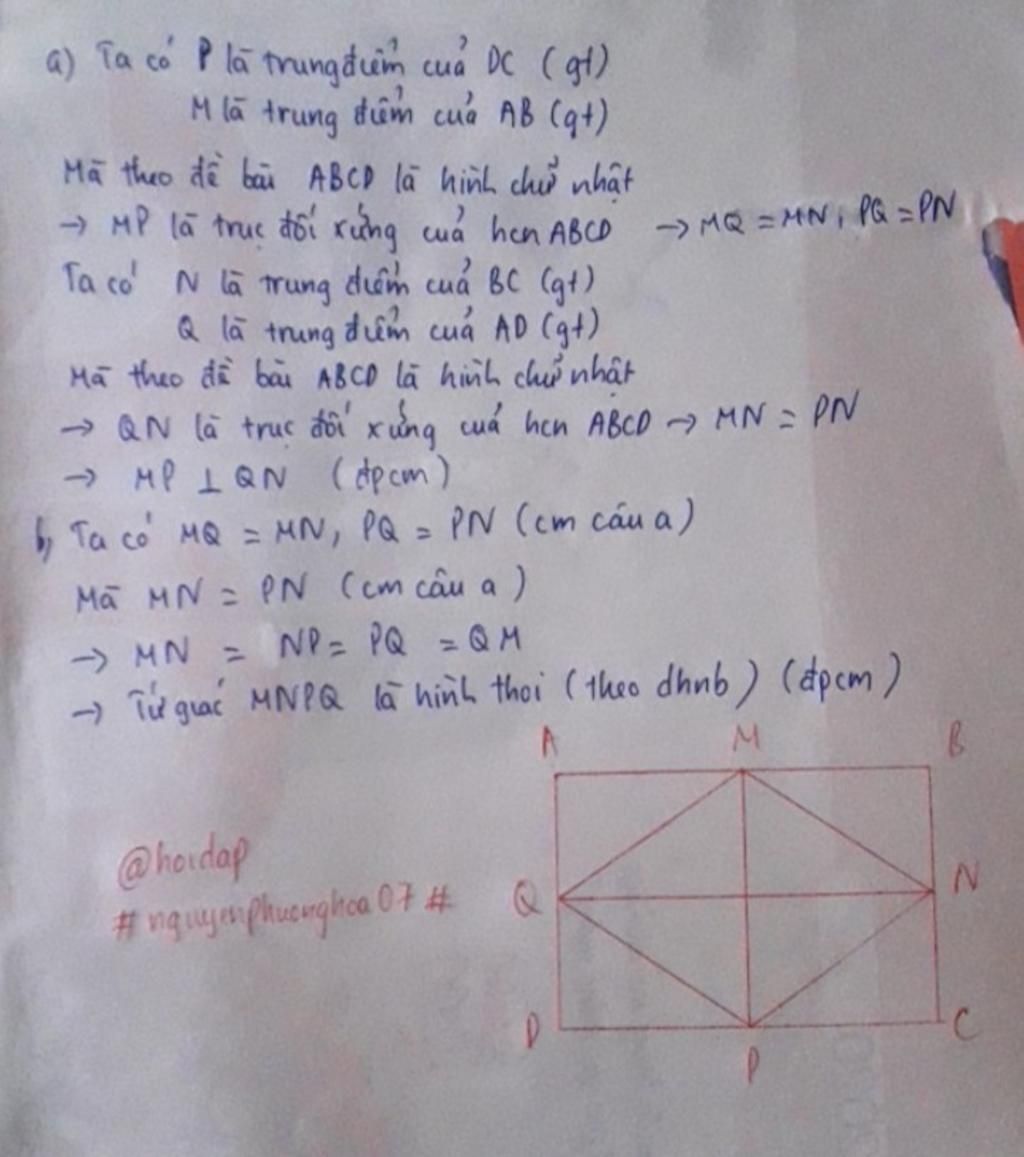 a) Ta có P là trung điểm của DC (gt)
M là trung điểm của AB (gt)
Mà theo đề bài ABCD là hình chữ nhật
→ MP là trục đối xứng của hcn ABCD → MQ = MN, PQ = PN
Ta có N là trung điểm của BC (gt)
Q là trung điểm của AD (gt)
Mà theo đề bài ABCD là hình chữ nhật
→ QN là trục đối xứng của hcn ABCD → MN = PN
→ MP ⊥ QN (đpcm)
b, Ta có MQ = MN, PQ = PN (cm câu a)
Mà MN = PN (cm câu a)
→ MN = NP = PQ = QM
→ Tứ giác MNPQ là hình thoi (theo dhnb) (đpcm)
A M B
@hoidap
Q N
#nguyenphuonghoa07#
D C
P